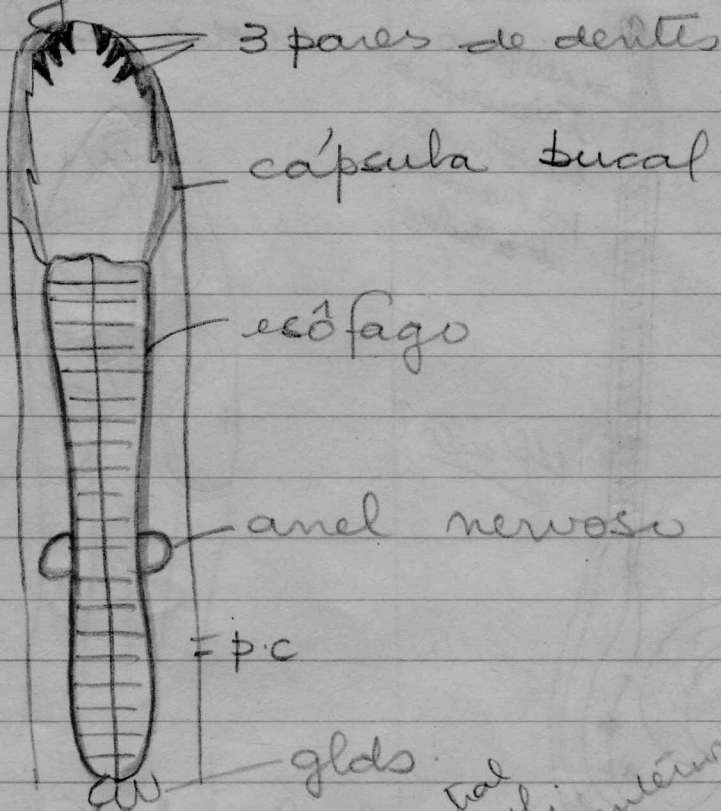 3 pares de dentes
cápsula bucal
esôfago
anel nervoso
= p.c
glds.